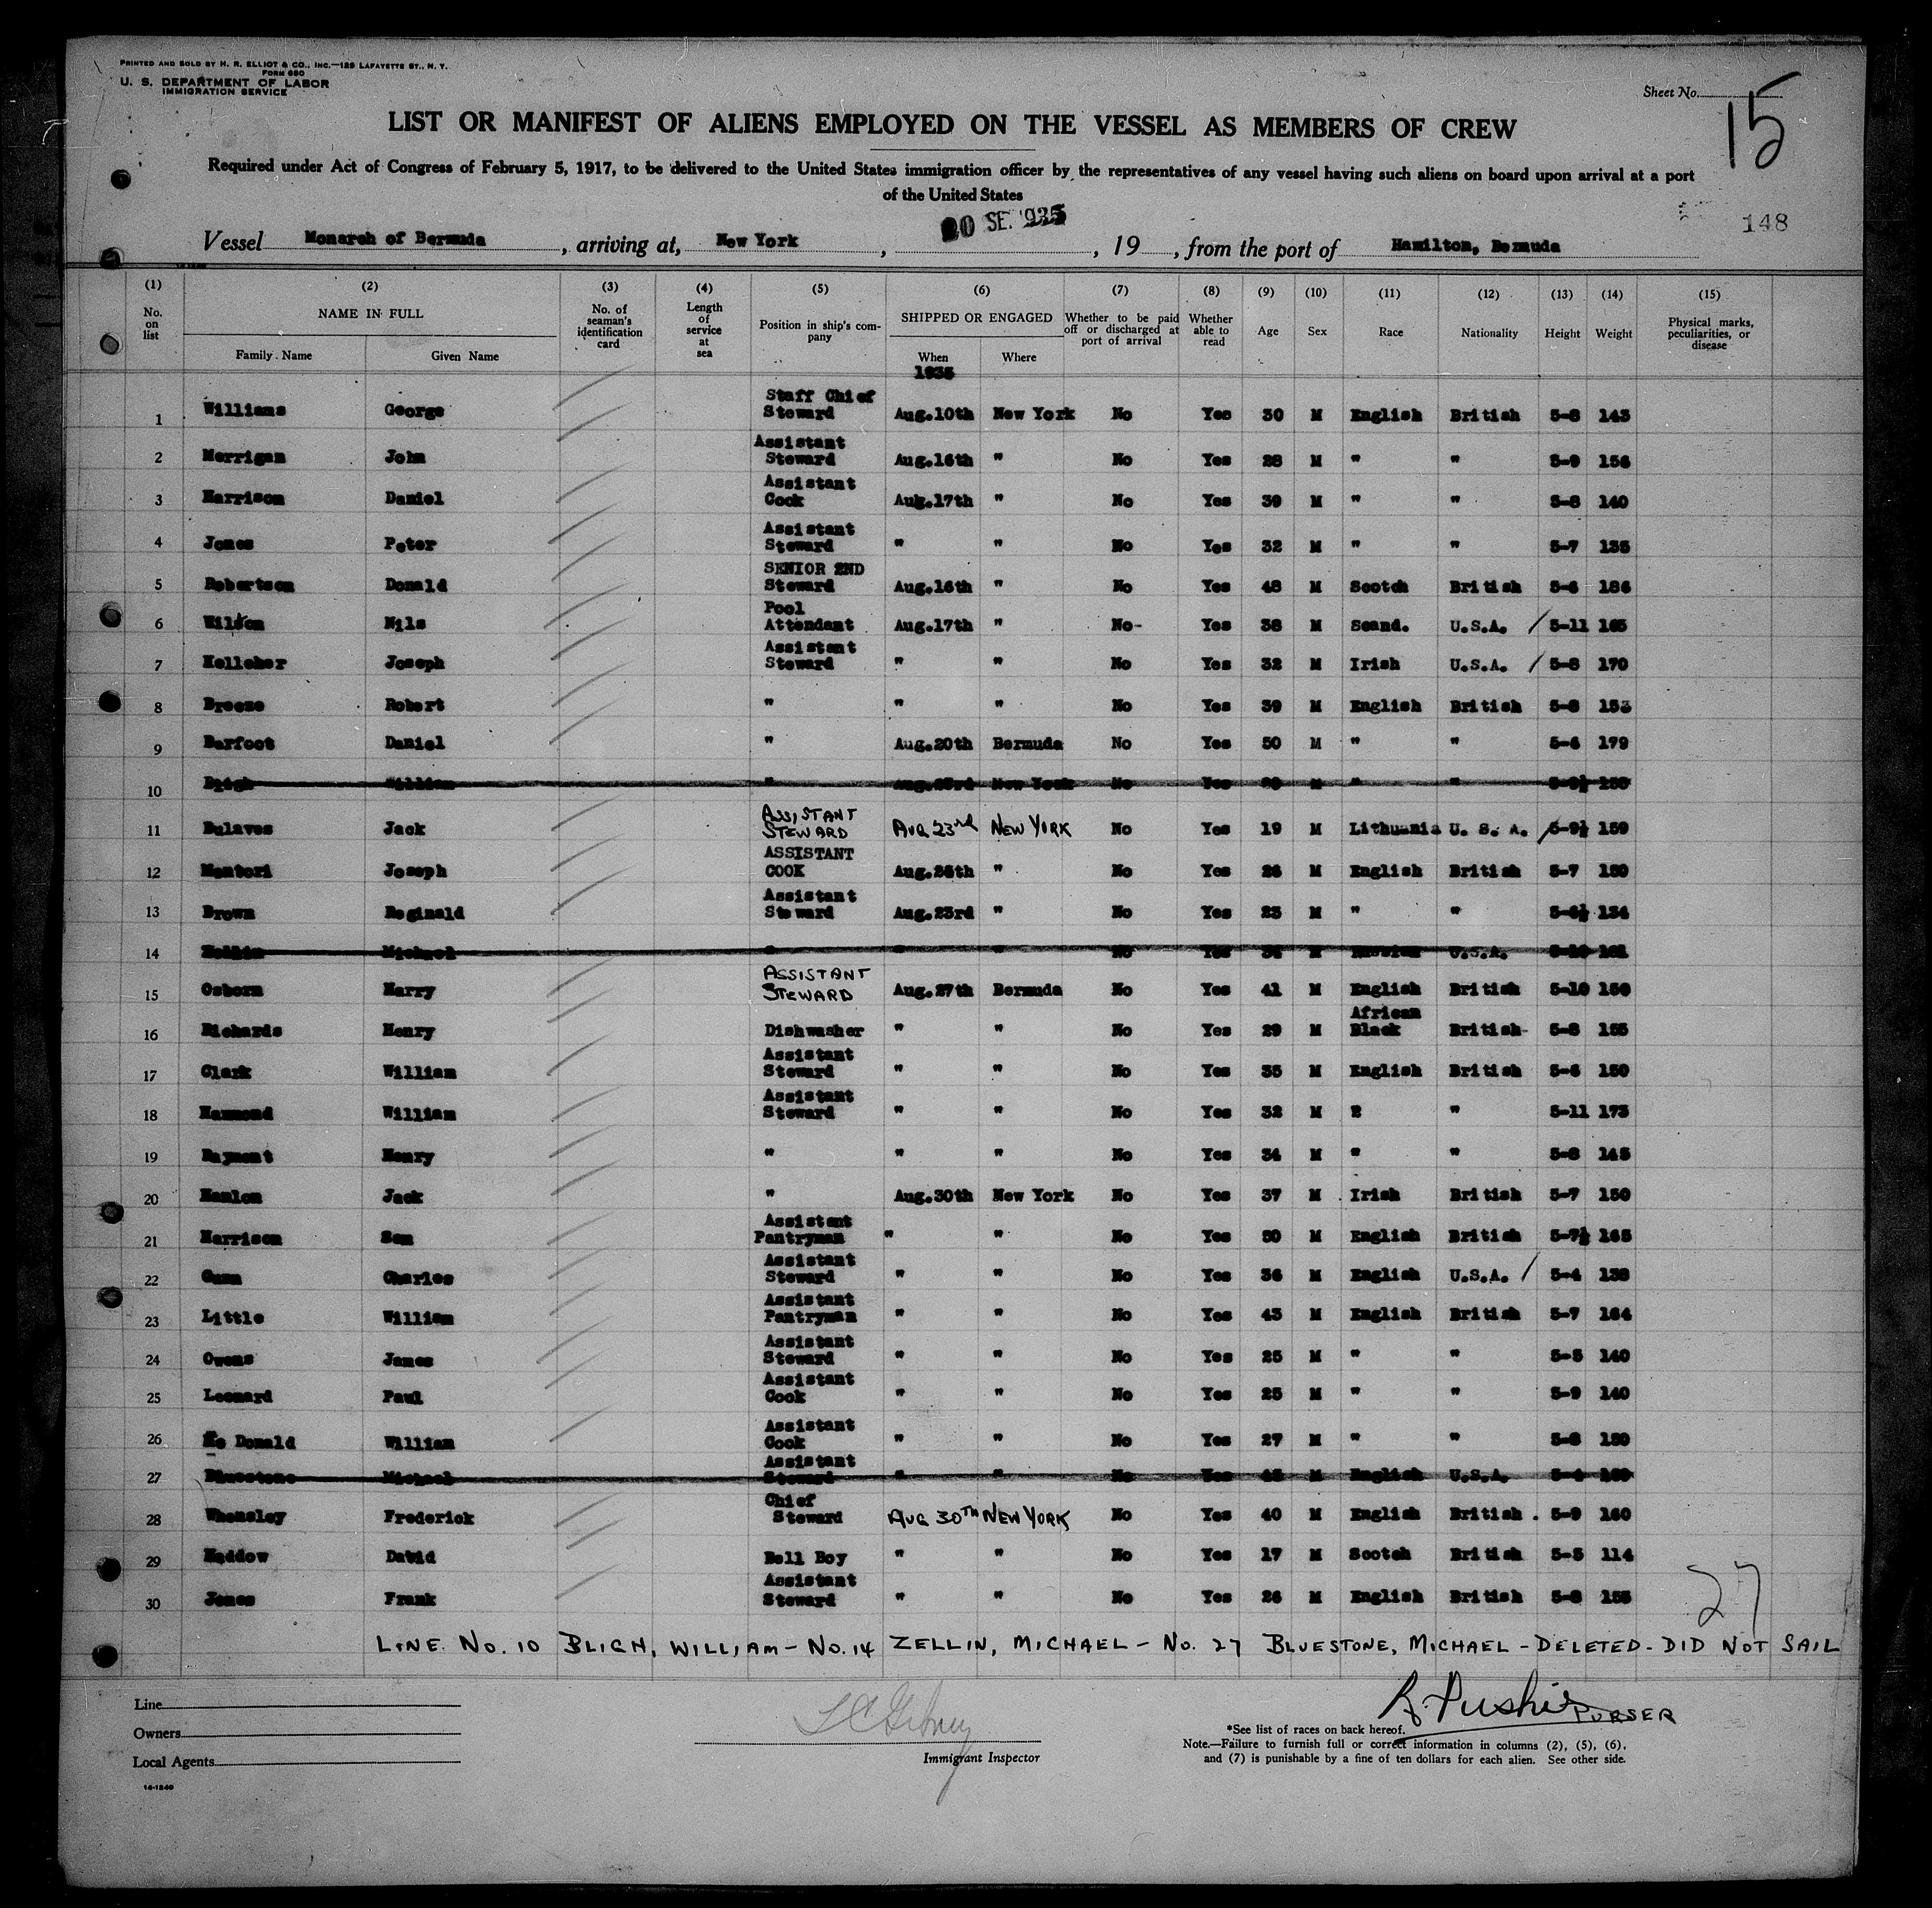 PRINTED AND SOLD BY H. R. ELLIOT & CO., INC.—129 LAFAYETTE ST., N. Y.
FORM 680
U. S. DEPARTMENT OF LABOR
IMMIGRATION SERVICE
Sheet No.
15
LIST OR MANIFEST OF ALIENS EMPLOYED ON THE VESSEL AS MEMBERS OF CREW
Required under Act of Congress of February 5, 1917, to be delivered to the United States immigration officer by the representatives of any vessel having such aliens on board upon arrival at a port
of the United States
148
Vessel Monarch of Bermuda, arriving at, New York, 20 SE. 1935, 19, from the port of Hamilton, Bermuda
(1) (2) (3) (4) (5) (6) (7) (8) (9) (10) (11) (12) (13) (14) (15)
No. on list NAME IN FULL No. of seaman's identification card Length of service at sea Position in ship's company SHIPPED OR ENGAGED Whether to be paid off or discharged at port of arrival Whether able to read Age Sex Race Nationality Height Weight Physical marks, peculiarities, or disease
Family Name Given Name When Where
1935
1 Williams George Staff Chief Steward Aug.10th New York No Yes 30 M English British 5-8 143
2 Merrigan John Assistant Steward Aug.16th " No Yes 28 M " " 5-9 156
3 Harrison Daniel Assistant Cook Aug.17th " No Yes 39 M " " 5-8 140
4 Jones Peter Assistant Steward " " No Yes 32 M " " 5-7 135
5 Robertson Donald SENIOR 2ND Steward Aug.16th " No Yes 48 M Scotch British 5-6 186
6 Nils Pool Attendant Aug.17th " No- Yes 38 M Scand. U.S.A. / 5-11 165
7 Kelleher Joseph Assistant Steward " " No Yes 32 M Irish U.S.A. / 5-8 170
8 Breeze Robert " " " No Yes 39 M English British 5-8 153
9 Barfoot Daniel " Aug.20th Bermuda No Yes 50 M " " 5-6 179
10 Bligh William " Aug.23rd New York No Yes M " "
11 Bulaves Jack ASSISTANT STEWARD AUG 23rd NEW YORK No Yes 19 M Lithuania U. S. A. / 5-9½ 159
12 Montori Joseph ASSISTANT COOK " No Yes 26 M English British 5-7 150
13 Brown Reginald Assistant Steward Aug.23rd " No Yes 23 M " " 5-6½ 134
14 Zellin Michael " " " No Yes M U.S.A. 5-10
15 Osborn Harry ASSISTANT STEWARD Aug.27th Bermuda No Yes 41 M English British 5-10 150
16 Richards Henry Dishwasher " " No Yes 29 M African Black British- 5-8 155
17 Clark William Assistant Steward " " No Yes 35 M English British 5-6 150
18 Hammond William Assistant Steward " " No Yes 32 M 2 " 5-11 173
19 Rayment Henry " " " No Yes 34 M " " 5-8 145
20 Hanlon Jack " Aug.30th New York No Yes 37 M Irish British 5-7 150
21 Harrison Sam Assistant Pantryman " " No Yes M English British 5-7½ 165
22 Gunn Charles Assistant Steward " " No Yes 36 M English U.S.A. / 5-4 138
23 Little William Assistant Pantryman " " No Yes 43 M English British 5-7 164
24 Owens James Assistant Steward " " No Yes 25 M " " 5-5 140
25 Leonard Paul Assistant Cook " " No Yes 25 M " " 5-9 140
26 Mc Donald William Assistant Cook " " No Yes 27 M " " 5-8 150
27 Bluestone Michael Assistant Steward " " No Yes M English U.S.A. 5-4
28 Whomsley Frederick Chief Steward AUG 30TH NEW YORK No Yes 40 M English British . 5-9 160
29 Haddow David Bell Boy " " No Yes 17 M Scotch British 5-5 114
30 Jones Frank Assistant Steward " " No Yes 26 M English British 5-8 155
27
LINE NO. 10 BLIGH, WILLIAM – NO. 14 ZELLIN, MICHAEL – NO. 27 BLUESTONE, MICHAEL – DELETED – DID NOT SAIL
Line
Owners
Local Agents
14-1240
Immigrant Inspector
PURSER
*See list of races on back hereof.
Note.—Failure to furnish full or correct information in columns (2), (5), (6),
and (7) is punishable by a fine of ten dollars for each alien. See other side.